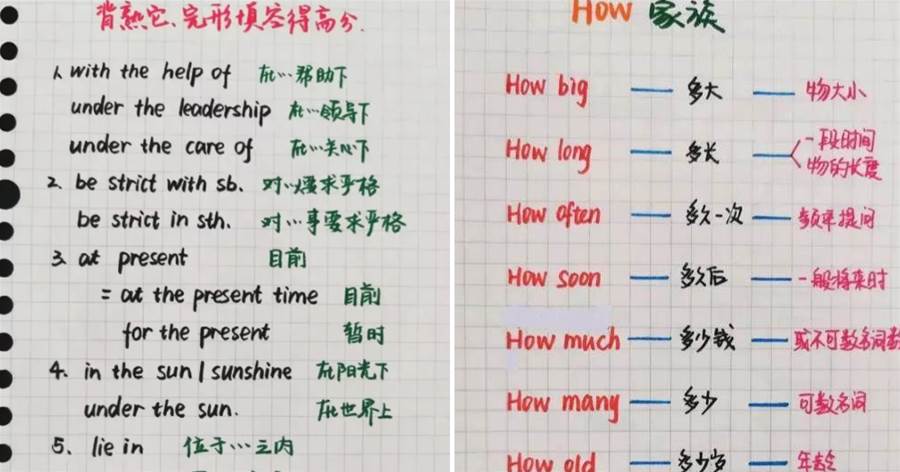 背熟它、完形填空得高分.
1. with the help of 在…帮助下
under the leadership 在…领导下
under the care of 在…关心下
2. be strict with sb. 对…要求严格
be strict in sth. 对…事要求严格
3. at present 目前
= at the present time 目前
for the present 暂时
4. in the sun / sunshine 在阳光下
under the sun. 在世界上
5. lie in 位于…之内
How 家族
How big — 多大 — 物大小
How long — 多长 — 一段时间
物的长度
How often — 多久一次 — 频率提问
How soon — 多久后 — 一般将来时
How much — 多少钱 — 或不可数名词
How many — 多少 — 可数名词
How old — 多少岁 — 年龄